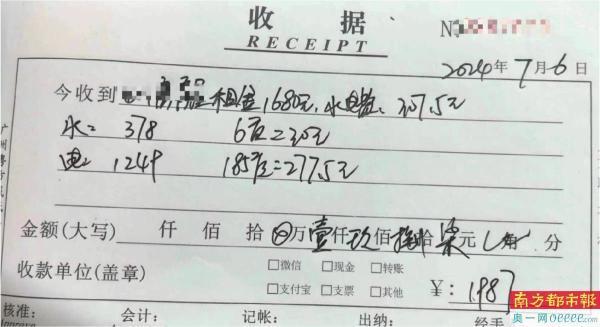 收据
RECEIPT
№
2024年7月6日
今收到 租金1680元,水电费:307.5元
水: 378 6度=30元
电: 1249 185度=277.5元
金额(大写) 仟 佰 拾 万壹仟玖佰捌拾柒元 角 分
收款单位(盖章) □微信 □现金 □转账
□支付宝 □支票 □其他 ¥: 1987
核准: 会计: 记帐: 出纳: 经手
南方都市报
奥一网oeeee.com